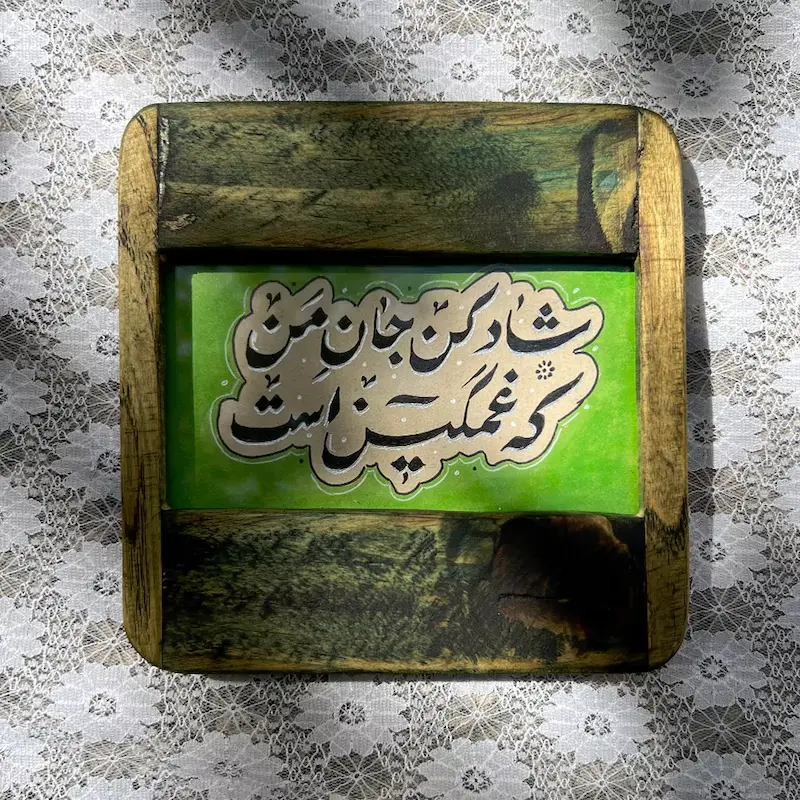 شاد کن جانِ مَن
که غمگین است